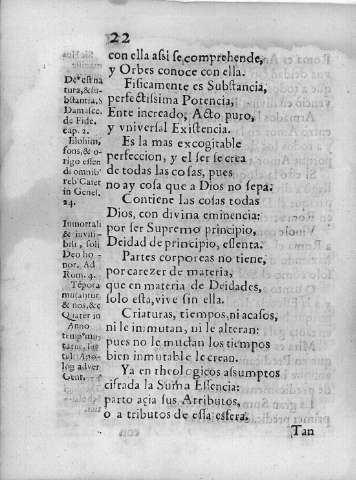 22
con ella assi se comprehende,
y Orbes conoce con ella.
Fisicamente es Substancia,
perfectissima Potencia,
Ente increado, Acto puro,
y vniversal Existencia.
Es la mas excogitable
perfeccion, y el ser se crea
de todas las cosas, pues
no ay cosa que a Dios no sepa.
Contiene las cosas todas
Dios, con divina eminencia:
por ser Supremo principio,
Deidad de principio, essenta.
Partes corporeas no tiene,
por carezer de materia,
que en materia de Deidades,
solo esta, vive sin ella.
Criaturas, tiempos, ni acasos,
ni le inmutan, ni le alteran:
pues no le mudan los tiempos
bien inmutable le crean.
Ya en theologicos assumptos
cifrada la Suma Essencia:
parto acia sus Atributos,
o a tributos de essa esfera.
Tan
De est na
tura, & su-
bstantia, S
Damasce.
de Fide.
cap. 2.
Elohim,
fons, & o-
rigo essen
di omnib9
reb9 Caiet
in Genes.
24.
Inmortali
& invisi-
bili, soli
Deo ho-
nor. Ad
Rom. 4.
Tēpora
mutantur
& nos, &c
Quater in
Anno